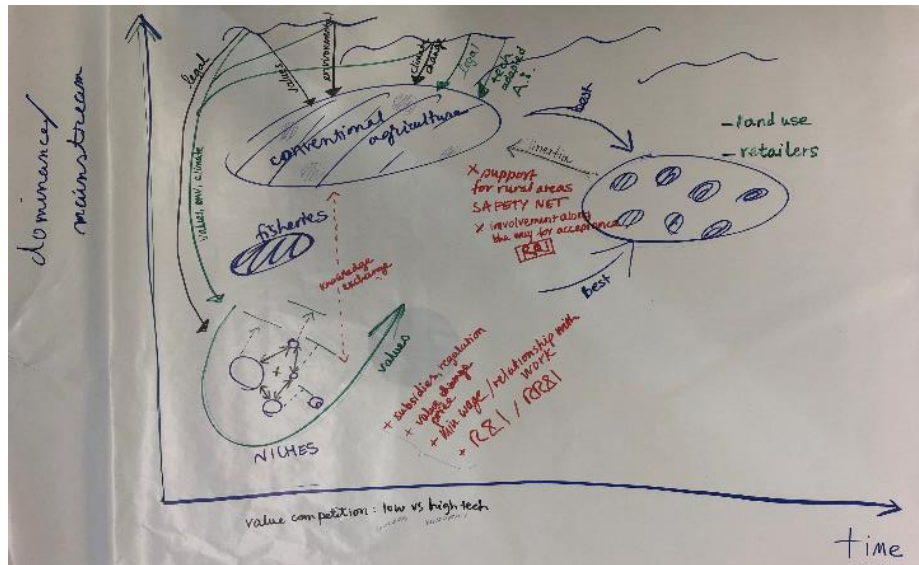 dominance/
mainstream
legal
values
environmental
climate
change
legal
tech
adapted
A.i.
values, env, climate
conventional
agriculture
best
- land use
- retailers
inertia
x support
for rural areas
SAFETY NET
x involvement along
the way for acceptance
R&I
fisheries
knowledge
exchange
best
values
NICHES
+ subsidies, regulation
+ value change
price
+ min wage/relationship with
work
+ R&I / RR&I
value competition: low vs high tech
time